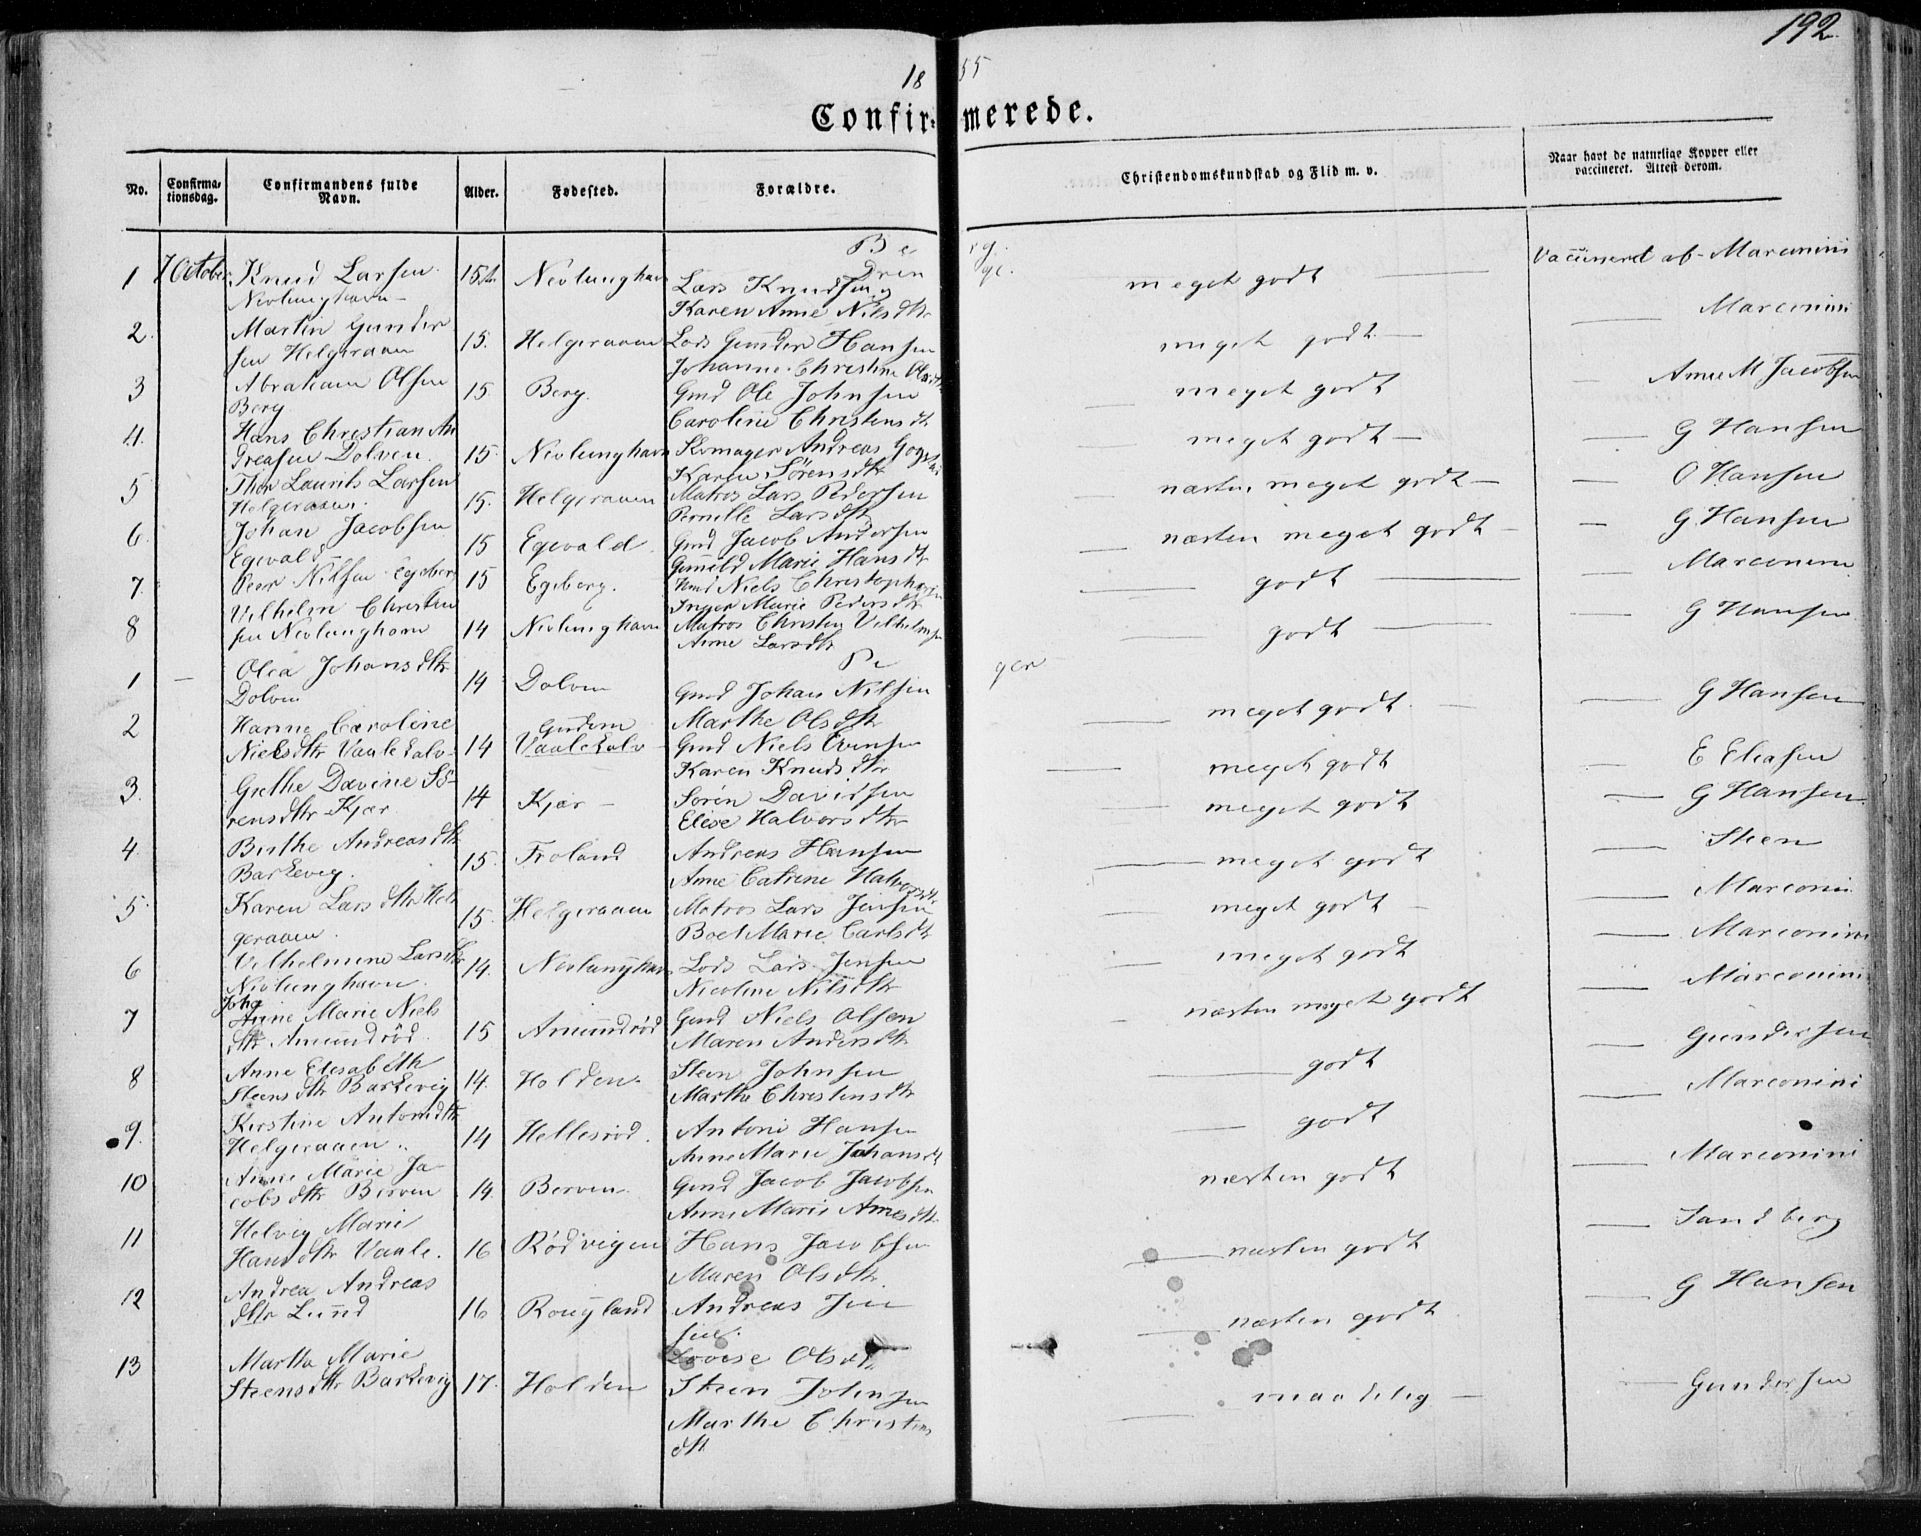 192
1855
Confirmerede.
No. Confirmationsdag. Confirmandens fulde Navn. Alder. Fødested. Forældre. Christendomskundskab og Flid m. v. Naar havt de naturlige Kopper eller vaccineret. Attest derom.
Berg.
Drenge.
1 7 October Knud Larsen Nevlunghavn 15 Nevlunghavn Lars Knudsen og Karen Anne Nilsdtr meget godt Vaccineret af Marconini
2. Martin Gundersen Helgeraaen 15. Helgeraaen Lods Gunder Hansen Johanne Christine Olsdtr meget godt Marconini
3 Abraham Olsen Berg 15 Berg. Gmd Ole Johnsen Caroline Christensdt meget godt Anne M Jacobsen
4. Hans Christian Andreasen Dolven 15 Nevlunghavn Skomager Andreas Karen Sørensdtr meget godt G Hansen
5 Thor Laurits Larsen Helgeraaen. 15. Helgeraaen Matros Lars Pedersen Pernille Larsdtr næsten meget godt O Hansen
6. Johan Jacobsen Egevald 15 Egevald Gmd Jacob Andersen Gunild Marie Hansdtr næsten meget godt G Hansen
7. Peer Nilsen Egeberg 15 Egeberg. Gmd Niels Christophersen Inger Marie Pedersdtr godt Marconini
8 Vilhelm Christensen Nevlunghavn 14 Nevlunghavn Matros Christen Vilhelmsen Anne Larsdtr godt G Hansen
Piger
1 Olea Johansdtr Dolven 14 Dolven Gmd Johan Nilsen Marthe Olsdtr meget godt G Hansen
2 Hanne Caroline Nielsdtr Vaale 14 Vaale Gmd Niels Evensen Karen Knudsdtr meget godt E Eliasen
3. Grethe Davine Sørensdtr Kjær 14 Kjær Søren Davidsen Elise Halvorsdtr meget godt G Hansen
4. Birthe Andreasdtr Barkevig. 15. Froland Andreas Hansen Anne Catrine Halvorsdtr meget godt Steen
5 Karen Larsdtr Helgeraaen. 15. Helgeraaen Matros Lars Jensen Boel Marie Carlsdtr meget godt Marconini
6 Vilhelmine Larsdtr Nevlunghavn. 14. Nevlunghavn Lods Lars Jensen Nicoline Nilsdtr meget godt Marconini
7 Anne Marie Nielsdtr Amundrød 15 Amundrød Gmd Niels Olsen Maren Andersdtr næsten meget godt Marconini
8 Anne Elisabeth Steensdtr Barkevig 14. Holden Steen Johnsen Marthe Christensdtr godt Gundersen
9. Kirstine Antonidtr Helgeraaen. 14 Hellesrød. Antoni Hansen Anne Marie Johansdt godt Marconini
10 Anne Marie Jacobsdtr Berven 14. Berven Gmd Jacob Jacobsen Anne Marie næsten godt Marconini
11 Helvig Marie Hansdtr Vaale. 16 Rødvigen Hans Jacobsen Maren Olsdtr næsten godt Sandberg
12 Andrea Andreasdtr Lund 16 Andreas Jensen. Lovise Olsdtr næsten godt G Hansen
13 Marthe Marie Steensdtr Barkevig 17. Holden Steen Johnsen Marthe Christensdtr maadelig Gundersen